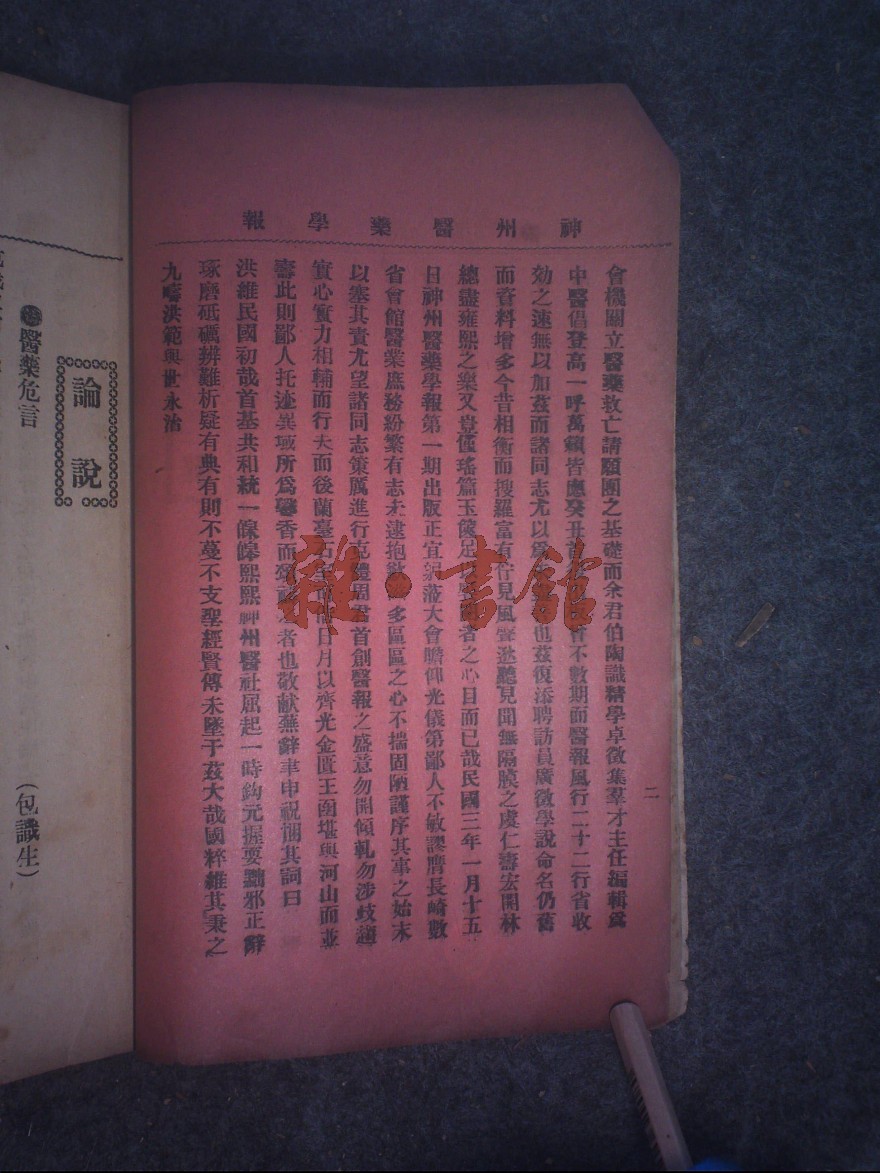 神州醫藥學報
二
會機關立醫藥救亡請願團之基礎而余君伯陶識精學卓徵集羣才主任編輯爲
中醫倡登高一呼萬籟皆應癸丑首 不數期而醫報風行二十二行省收
効之速無以加茲而諸同志尤以爲 也茲復添聘訪員廣徵學說命名仍舊
而資料增多今昔相衡而搜羅富有佇見風聲逖聽見聞無隔膜之虞仁壽宏開林
總盡雍熙之樂又豈僅瑤篇玉牒足 者之心目而已哉民國三年一月十五
日神州醫藥學報第一期出版正宜躬蒞大會瞻仰光儀第鄙人不敏謬膺長崎數
省會館醫業庶務紛繁有志未逮抱歉 多區區之心不揣固陋謹序其事之始末
以塞其責尤望諸同志策厲進行克體周君首創醫報之盛意勿開傾軋勿涉歧趨
實心實力相輔而行夫而後蘭臺石 日月以齊光金匱玉函堪與河山而並
壽此則鄙人托迹異域所爲馨香而 者也敬献蕪辭聿申祝詞其詞曰
洪維民國初哉首基共和統一皞皞熙熙神州醫社屈起一時鈎元握要黜邪正辭
琢磨砥礪辨難析疑有典有則不蔓不支聖經賢傳未墜于茲大哉國粹維其秉之
九疇洪範與世永治
論說
醫藥危言
(包識生)
雜·書館